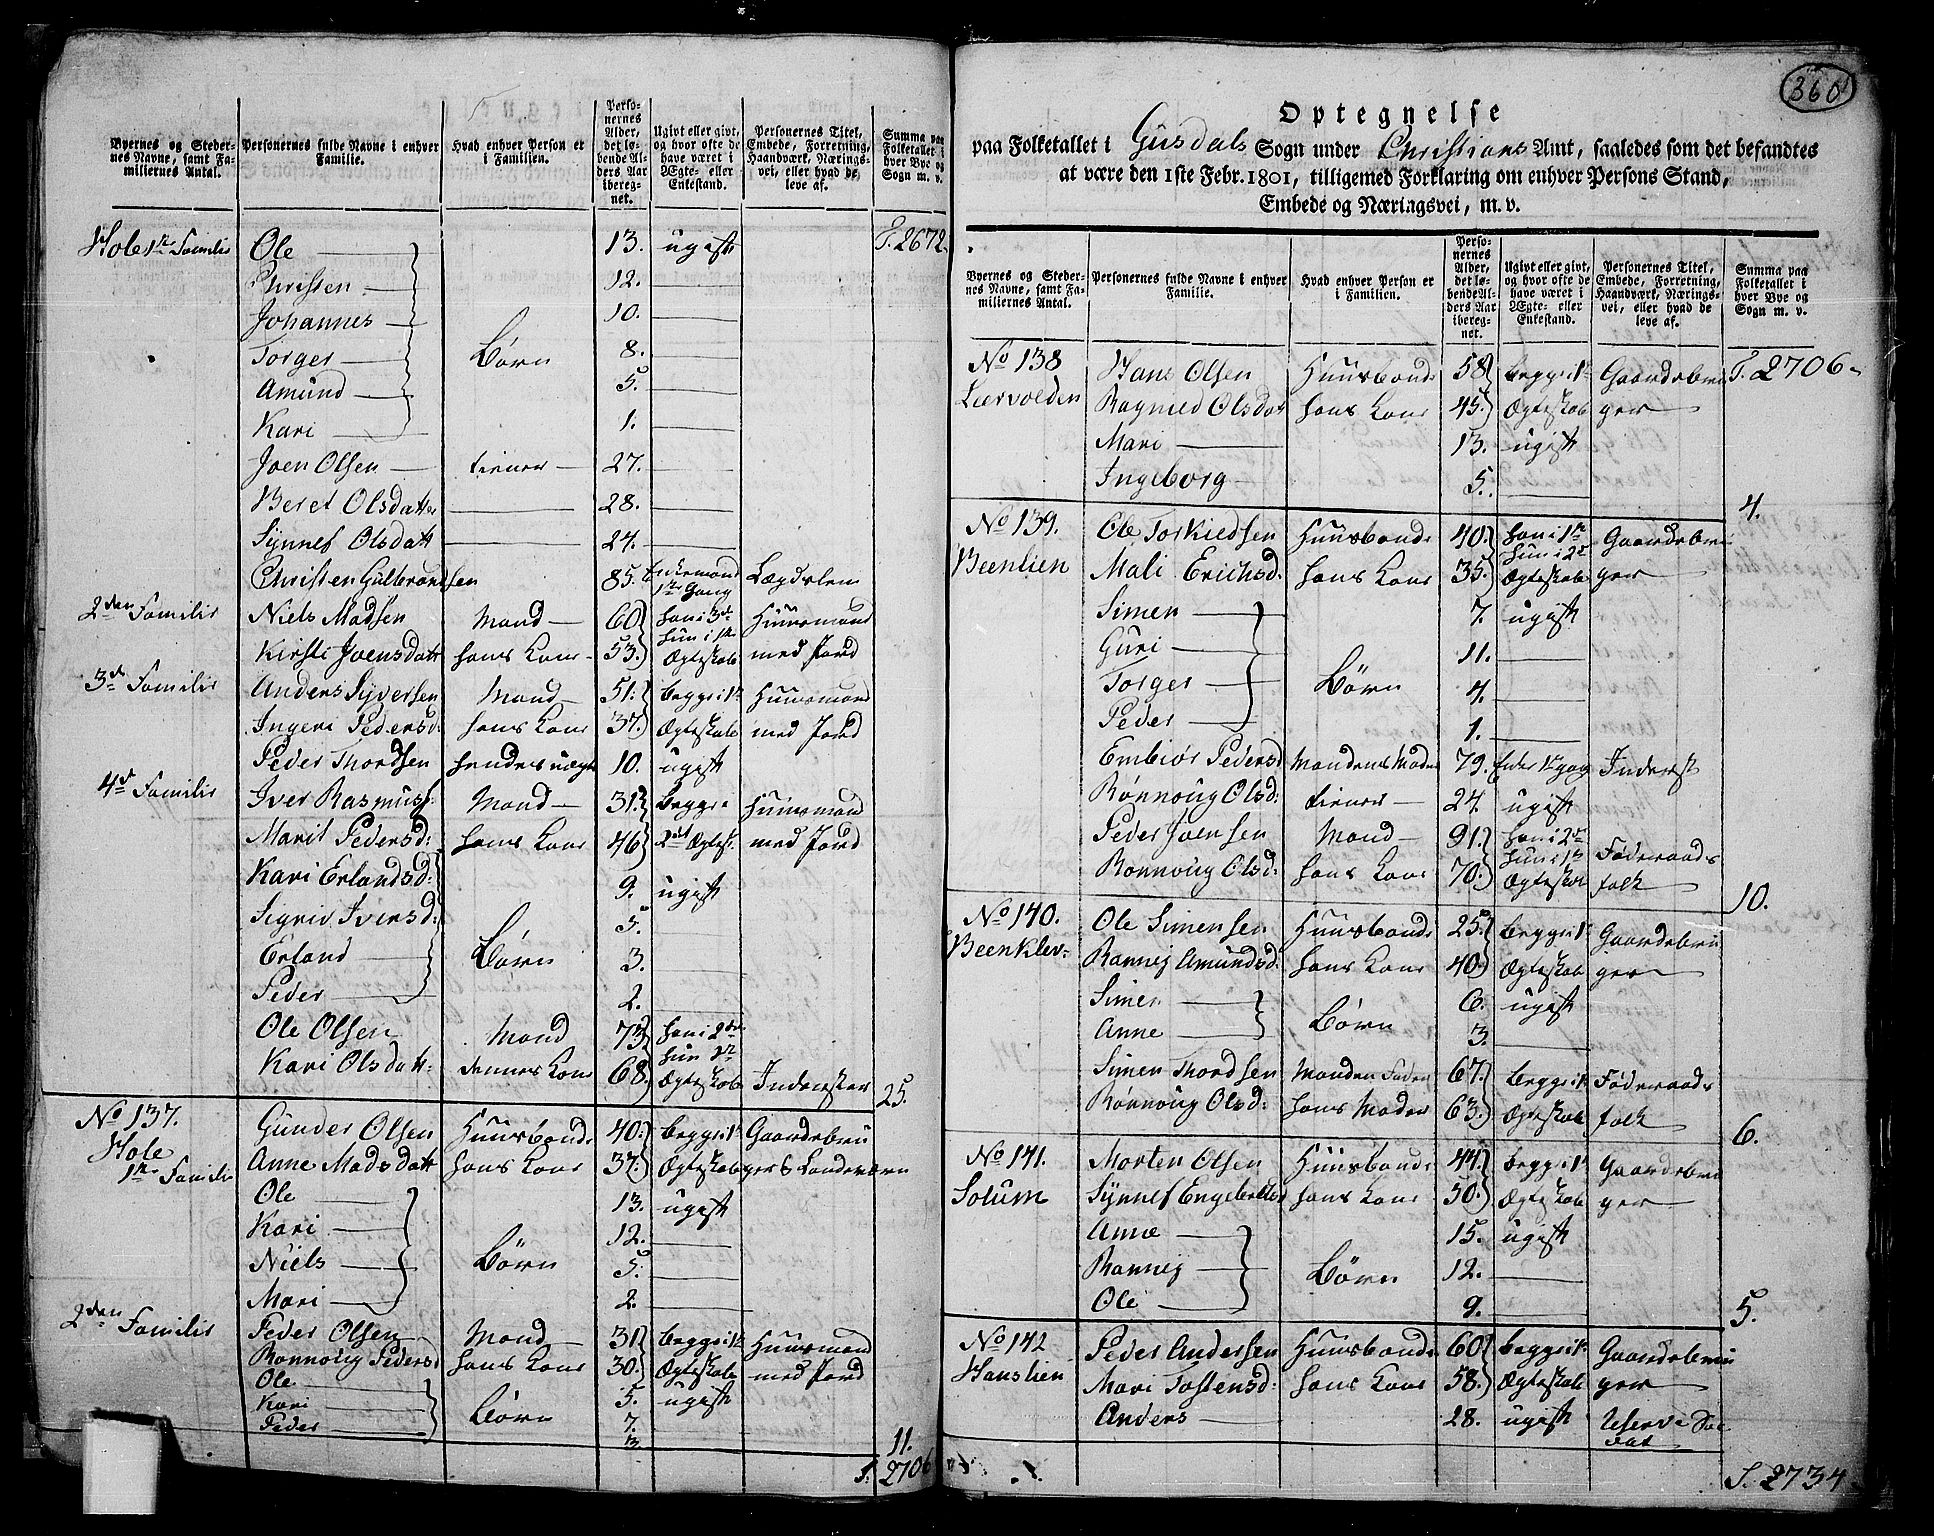 Byernes og Steder-
nes Navne, samt Fa-
miliernes Antal.
Personernes fulde Navne i enhver
Familie.
Hvad enhver Person er
i Familien.
Perso-
nernes
Alder,
det lø-
bende Al-
ders Aar
ibereg-
net.
Ugivt eller givt,
og hvor ofte de
have været i
Ægte- eller
Enkestand.
Personernes Titel,
Embede, Forretning,
Haandværk, Nærings-
vei, eller hvad de
leve af.
Summa paa
Folketallet i
hver Bye og
Sogn m. v.
Hole 1ste Familie Ole 13. ugift T. 2672.
Christen 12.
Johannes 10.
Torger Børn 8.
Amund 5.
Kari 1.
Joen Olsen tiener 27.
Beret Olsdatter 28.
Synnef Olsdatt 24.
Christen Gulbrandsen 85. Enkemand Lægdslem
1ste Gang
2den Familie Niels Madsen Mand 60 han i 3de Huusmand
hun i 1ste
Kirsti Joensdatt hans Kone 53. Ægteskab med Jord
3de Familie Anders Syversen Mand 51. begge i 1te Huusmand
Ingeri Pedersd: hans Kone 37. Ægteskab med Jord
Peder Thordsen hendes uægte 10. ugift
4de Familie Iver Rasmuss: Mand 31. begge i Huusmand
Marit Pedersd: hans Kone 46 2det Ægtes: med Jord
Kari Erlandsd: 9. ugift
Sigrid Iversd: 5.
Erland Børn 3.
Peder 2.
Ole Olsen Mand 73. han i 2den
hun 1te
Kari Olsdatt: dennes Kone 68. Ægteskab Inderster 25.
No 137. Gunder Olsen Huusbonde 40. begge i 1te Gaardebru
Hole
1ste Familie Anne Madsdatt hans Kone 37. Ægteskab ger &
Ole 13. ugift
Kari 12.
Niels Børn 5.
Mari 2.
2den Familie Peder Olsen Mand 31 begge i 1te Huusmand
Rønnoug Pedersd hans Kone 30. Ægteskab med Jord
Ole 5. ugift
Kari Børn 7.
Peder 3 11.
S. 2706
360
Optegnelse
paa Folketallet i Gusdals Sogn under Christians Amt, saaledes som det befandtes
at være den 1ste Febr. 1801, tilligemed Forklaring om enhver Persons Stand,
Embede og Næringsvei, m. v.
Byernes og Steder-
nes Navne, samt Fa-
miliernes Antal.
Personernes fulde Navne i enhver
Familie.
Hvad enhver Person er
i Familien.
Perso-
nernes
Alder,
det lø-
bende Al-
ders Aar
ibereg-
net.
Ugivt eller givt,
og hvor ofte de
have været i
Ægte- eller
Enkestand.
Personernes Titel,
Embede, Forretning,
Haandværk, Nærings-
vei, eller hvad de
leve af.
Summa paa
Folketallet i
hver Bye og
Sogn m. v.
No 138 Hans Olsen Huusbonde 58 begge i 1te Gaardebru T. 2706
Lærvolden Ragnild Olsdat hans Kone 45. Ægteskab ger
Mari 13. ugift
Ingeborg 5.
4.
No 139. Ole Torkieldsen Huusbonde 40. han i 1te Gaardebru
hun i 2de
Beenlien Mali Erichsd. hans Kone 35. Ægteskab ger
Simen 7. ugift
Guri 11.
Torger Børn 4.
Peder 1.
Embiør Pedersd Mandens Moder 79. Enke 1te gang Inderst
Rønnoug Olsd: tiener 24. ugift
Peder Joensen Mand 91. han i 2de
hun i 1te Føderaads
Rønnoug Olsd: hans Kone 70. Ægteskab folk
10.
No 140. Ole Simensen Huusbonde 25. begge i 1te Gaardebru
Beenklev: Rannej Amundsd: hans Kone 40. Ægteskab ger
Simen Børn 6. ugift
Anne 3.
Simen Thordsen Mandens Fader 67. begge i 1te Føderaads
Rønnoug Olsd: hans Moder 63. Ægteskab folk
6.
No 141. Morten Olsen Huusbonde 44. begge i 1te Gaardebru
Solum Synnef Engebretsd hans Kone 50. Ægteskab ger
Anne 15. ugift
Rannej Børn 12.
Ole 9.
5.
No 142 Peder Andersen Huusbonde 60 begge i 1te Gaardebru
Hanslien Mari Tostensd: hans Kone 58. Ægteskab ger
Anders 28. ugift Reserve Sol
dat
S. 2734